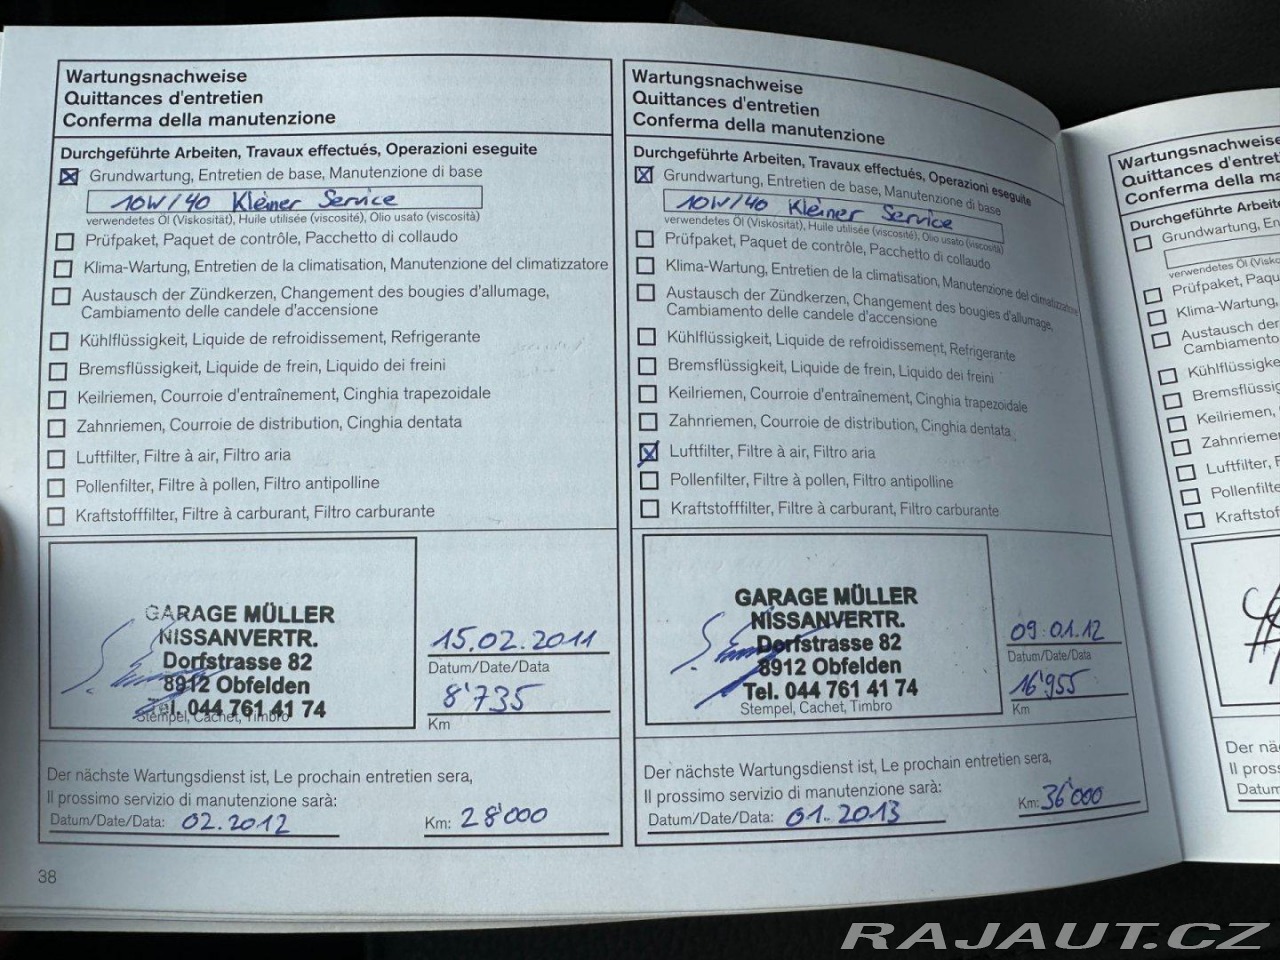 Wartungsnachweise
Quittances d'entretien
Conferma della manutenzione
Durchgeführte Arbeiten, Travaux effectués, Operazioni eseguite
Grundwartung, Entretien de base, Manutenzione di base
10W/40 Kleiner Service
verwendetes Öl (Viskosität), Huile utilisée (viscosité), Olio usato (viscosità)
Prüfpaket, Paquet de contrôle, Pacchetto di collaudo
Klima-Wartung, Entretien de la climatisation, Manutenzione del climatizzatore
Austausch der Zündkerzen, Changement des bougies d'allumage,
Cambiamento delle candele d'accensione
Kühlflüssigkeit, Liquide de refroidissement, Refrigerante
Bremsflüssigkeit, Liquide de frein, Liquido dei freini
Keilriemen, Courroie d'entraînement, Cinghia trapezoidale
Zahnriemen, Courroie de distribution, Cinghia dentata
Luftfilter, Filtre à air, Filtro aria
Pollenfilter, Filtre à pollen, Filtro antipolline
Kraftstofffilter, Filtre à carburant, Filtro carburante
GARAGE MÜLLER
NISSANVERTR.
Dorfstrasse 82
8912 Obfelden
Tel. 044 761 41 74
Stempel, Cachet, Timbro
15.02.2011
Datum/Date/Data
8'735
Km
Der nächste Wartungsdienst ist, Le prochain entretien sera,
Il prossimo servizio di manutenzione sarà:
Datum/Date/Data: 02.2012 Km: 28'000
38
Wartungsnachweise
Quittances d'entretien
Conferma della manutenzione
Durchgeführte Arbeiten, Travaux effectués, Operazioni eseguite
Grundwartung, Entretien de base, Manutenzione di base
10W/40 Kleiner Service
verwendetes Öl (Viskosität), Huile utilisée (viscosité), Olio usato (viscosità)
Prüfpaket, Paquet de contrôle, Pacchetto di collaudo
Klima-Wartung, Entretien de la climatisation, Manutenzione del climatizzatore
Austausch der Zündkerzen, Changement des bougies d'allumage,
Cambiamento delle candele d'accensione
Kühlflüssigkeit, Liquide de refroidissement, Refrigerante
Bremsflüssigkeit, Liquide de frein, Liquido dei freini
Keilriemen, Courroie d'entraînement, Cinghia trapezoidale
Zahnriemen, Courroie de distribution, Cinghia dentata
Luftfilter, Filtre à air, Filtro aria
Pollenfilter, Filtre à pollen, Filtro antipolline
Kraftstofffilter, Filtre à carburant, Filtro carburante
GARAGE MÜLLER
NISSANVERTR.
Dorfstrasse 82
8912 Obfelden
Tel. 044 761 41 74
Stempel, Cachet, Timbro
09.01.12
Datum/Date/Data
16'955
Km
Der nächste Wartungsdienst ist, Le prochain entretien sera,
Il prossimo servizio di manutenzione sarà:
Datum/Date/Data: 01.2013 Km: 36'000
Wartungsnachweise
Quittances d'entreti
Conferma della ma
Durchgeführte Arbeite
Grundwartung, En
verwendetes Öl (Visko
Prüfpaket, Paqu
Klima-Wartung,
Austausch der
Cambiamento
Kühlflüssigke
Bremsflüssig
Keilriemen,
Zahnriemen
Luftfilter, F
Pollenfilter
Kraftstof
Der nä
Il pross
Datum
RAJAUT.CZ